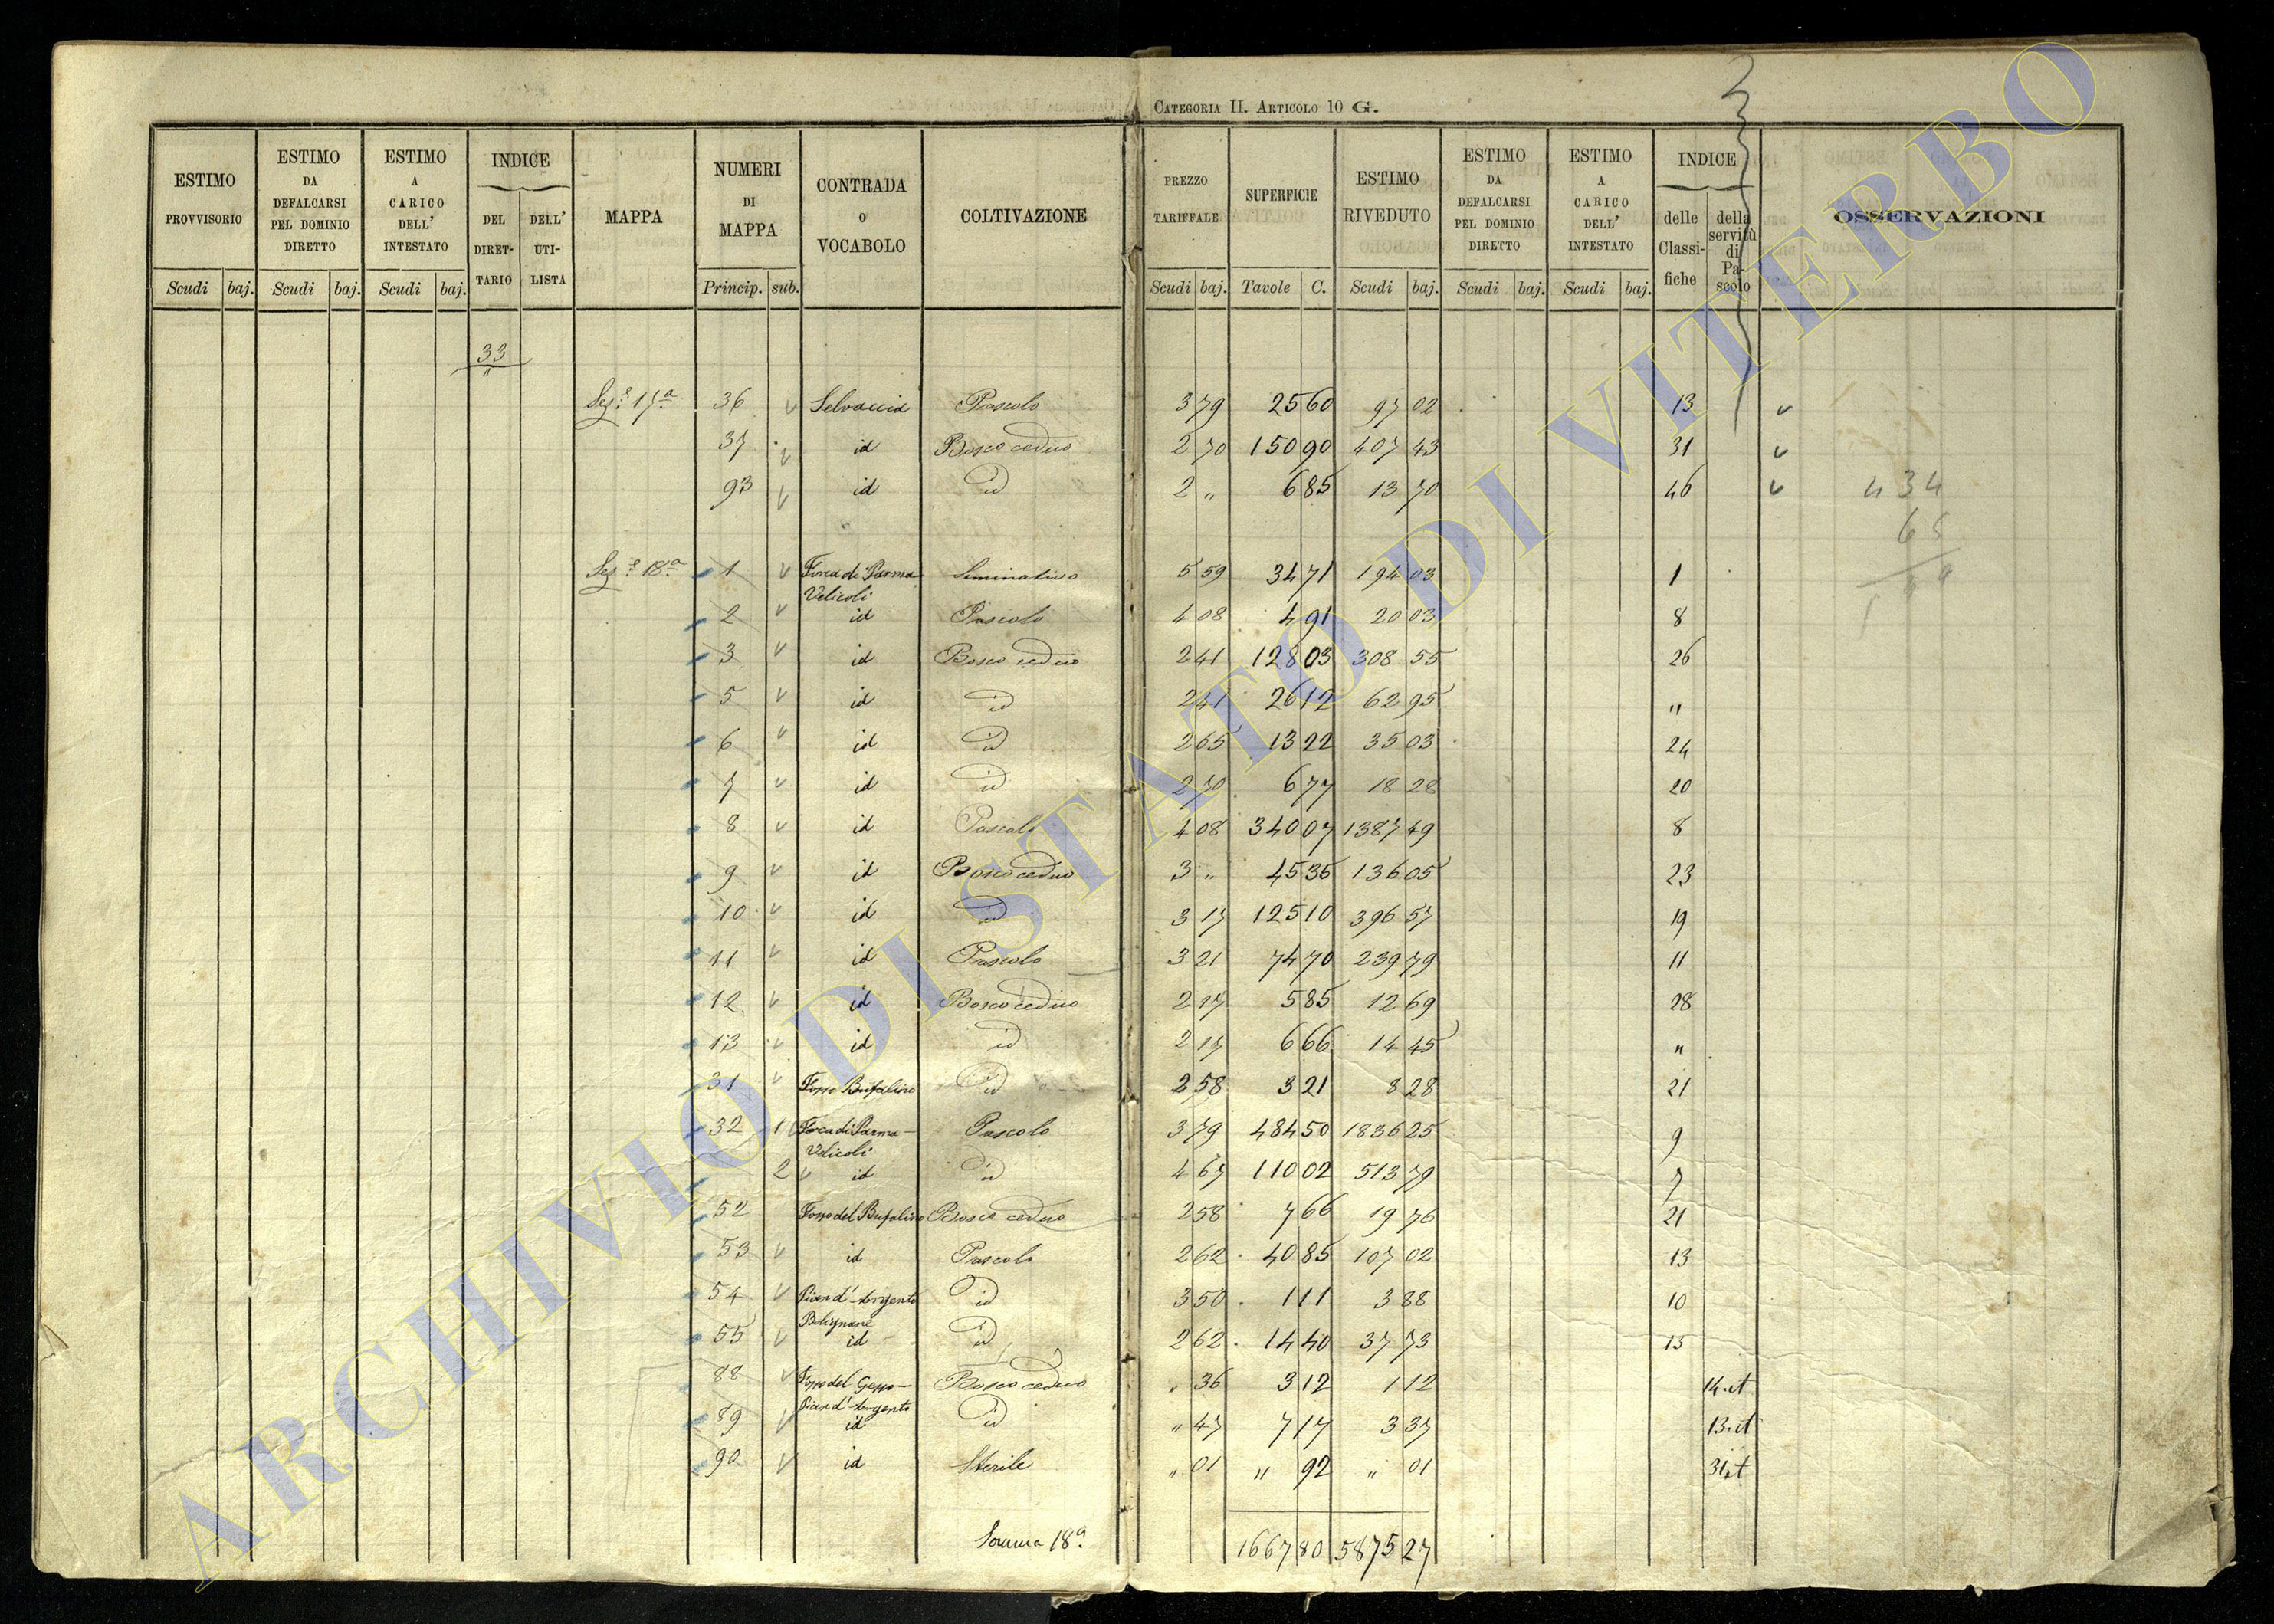 CATEGORIA II. ARTICOLO 10 G.
ESTIMO PROVVISORIO
ESTIMO DA DEFALCARSI PEL DOMINIO DIRETTO
ESTIMO A CARICO DELL' INTESTATO
INDICE
DEL DIRET-TARIO
DELL' UTI-LISTA
MAPPA
NUMERI DI MAPPA
CONTRADA O VOCABOLO
COLTIVAZIONE
PREZZO TARIFFALE
SUPERFICIE
ESTIMO RIVEDUTO
ESTIMO DA DEFALCARSI PEL DOMINIO DIRETTO
ESTIMO A CARICO DELL' INTESTATO
INDICE
delle Classi-fiche
della servitù di Pa-scolo
OSSERVAZIONI
Scudi baj. Scudi baj. Scudi baj. Princip. sub. Scudi baj. Tavole C. Scudi baj. Scudi baj. Scudi baj.
33
"
Sez.e 17.a 36 Selvaccia Pascolo 3 79 25 60 97 02 13
37 id Bosco ceduo 2 70 150 90 407 43 31
93 id id 2 " 6 85 13 70 46
434
65
Sez.e 18.a 1 Forca di Parma Seminativo 5 59 34 71 194 03 1
Velicoli
2 id Pascolo 4 08 4 91 20 03 8
3 id Bosco ceduo 2 41 128 03 308 55 26
5 id id 2 41 26 12 62 95 "
6 id id 2 65 13 22 35 03 24
7 id id 2 70 6 77 18 28 20
8 id Pascolo 4 08 340 07 1387 49 8
9 id Bosco ceduo 3 " 45 35 136 05 23
10 id id 3 17 125 10 396 57 19
11 id Pascolo 3 21 74 70 239 79 11
12 id Bosco ceduo 2 17 5 85 12 69 28
13 id id 2 17 6 66 14 45 "
31 Fosso Bufalino id 2 58 3 21 8 28 21
32 1 Forca di Parma – Pascolo 3 79 484 50 1836 25 9
Velicoli
2 id id 4 67 110 02 513 79 7
52 Fosso del Bufalino Bosco ceduo 2 58 7 66 19 76 21
53 id Pascolo 2 62 40 85 107 02 13
54 Pian d'Argento id 3 50 1 11 3 88 10
Bolignane
55 id id 2 62 14 40 37 73 13
88 Fosso del Gesso – Bosco ceduo " 36 3 12 1 12 14.et
Pian d'Argento
89 id id " 47 7 17 3 37 13.et
90 id Sterile " 01 " 92 " 01 31.et
Somma 18.a 1667 80 5875 27
ARCHIVIO DI STATO DI VITERBO